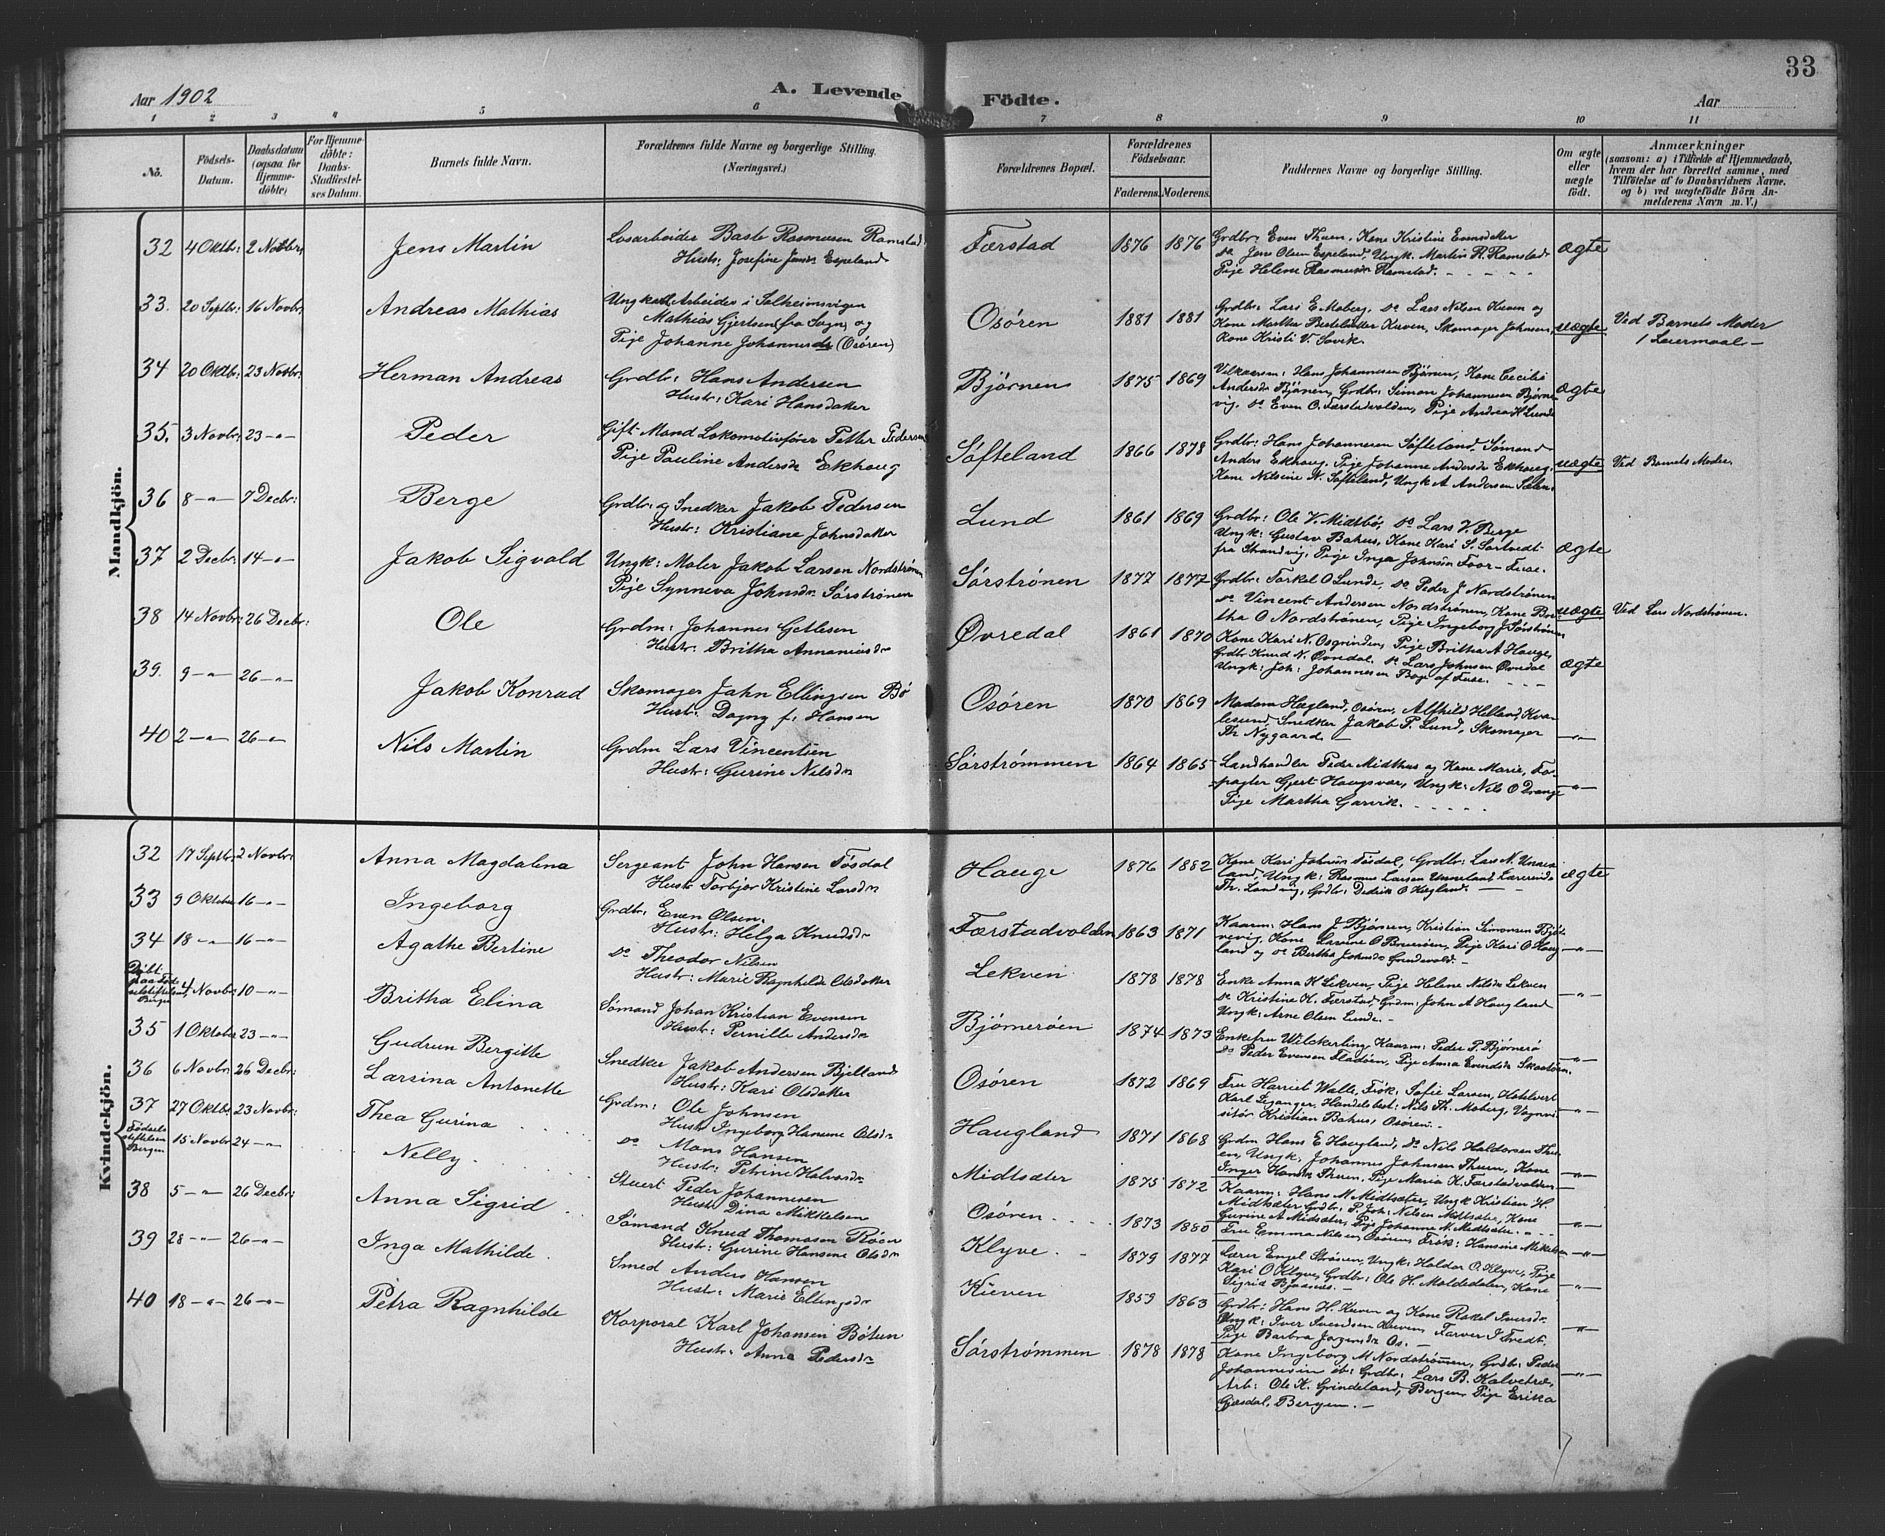 Aar 1902
A. Levende Födte.
Aar
33
1 2 3 4 5 6 7 8 9 10 11
No.
Födsels-Datum.
Daabsdatum (ogsaa for Hjemme-döbte)
For Hjemme-döbte: Daabs-Stadfæstel-ses Datum.
Barnets fulde Navn.
Forældrenes fulde Navne og borgerlige Stilling.
(Næringsvei.)
Forældrenes Bopæl.
Forældrenes Födselsaar.
Faderens. Moderens.
Faddernes Navne og borgerlige Stilling.
Om ægte eller uægte födt.
Anmærkninger
(saasom: a) i Tilfælde af Hjemmedaab,
hvem der har forrettet samme, med
Tilföielse af to Daabsvidners Navne.
og b) ved uægtefödte Börn An-
melderens Navn m. V.)
Mandkjön.
32 4 Oktbr: 2 Novbr: Jens Martin
Losarbeider Baste Rasmusen Ramstad
Hustr: Josefine Jensdr Espeland
Færstad 1876 1876
Grdbr: Even Thuen, Kone Kristine Evensdatter
do Jens Olsen Espeland, Ungk. Martin R. Ramstad
Pige Helene Rasmusdr Ramstad.
ægte
33. 20 Septbr: 16 Novbr: Andreas Mathias
Ungkarl Arbeider i Solheimsvigen
Mathias Gjertsen (fra Sogn) og
Pige Johanne Johannesdr (Osören)
Osören 1881 1881
Grdbr: Lars E. Moberg, do Lars Nilsen Kuven og
Kone Martha Kuven, Skomager Johnsen,
Kone Kristi V. Sovik.
uægte
Ved Barnets Moder
1 Leiermaal
34 20 Oktbr: 23 Novbr: Herman Andreas
Grdbr: Hans Andersen
Hustr: Kari Hansdatter
Bjørnen 1875 1869
Vilkaarsm: Hans Johannesen Bjørnen, Kone Cecilie
Andersdr Bjønen, Grdbr: Simon Johannesen Bjørne-
vig, do Even O. Færstadvolden, Pige Andrea H Lunde
ægte
35. 3 Novbr: 23 -"- Peder
Gift Mand Lokomotivfører Petter Pedersen
Pige Pauline Andersdr Ekhoug
Søfteland 1866 1878
Grdbr: Hans Johannesen Søfteland, Sømand
Anders Ekhoug, Pige Johanne Andersdr Ekhoug
Kone Nilsine N. Søfteland, Ungk A Andersen Sælen
uægte
Ved Barnets Moder.
36 8 -"- 7 Decbr: Berge
Grdbr: og Snedker Jakob Pedersen
Hustr: Kristiane Johnsdatter
Lund 1861 1869
Grdbr: Ole V. Midtbø, do Lars V. Berge
Ungk: Gustav Bahus, Kone Kari S. Sortvedt
fra Strandvig, Pige Inga Johnsdr Foor-Fuse.
ægte
37 2 Decbr: 14 -"- Jakob Sigvald
Ungk: Maler Jakob Larsen Nordstrønen
Pige Synneva Johnsdr Sørstrønen
Sørstrønen 1877 1877
Grdbr: Torkel O Lunde, do Peder J Nordstrønen
do Vincent Andersen Nordstrønen, Kone Ber-
tha O Nordstrønen, Pige Ingeborg J Sørstrønen
uægte
Ved Lars Nordstrønen.
38 14 Novbr: 26 Decbr: Ole
Grdm: Johannes Getlesen
Hustr: Britha Annaniasdr
Øvredal 1861 1870
Kone Kari N. Osgrinden, Pige Britha A Hauge,
Grdbr Knud N. Øvredal, do Lars Johnsen Øvredal
Ungk: Joh: Johannesen Boge af Fuse.
ægte
39. 9 -"- 26 -"- Jakob Konrad
Skomager John Ellingsen Bø
Hustr: Dagny f. Hansen
Osören 1870 1869
Madam Hægland, Osören, Alfhild Helland, Kva-
lesund, Snedker Jakob P. Lund, Skomager
Th. Nygaard.
-"-
40 2 -"- 26 -"- Nils Martin
Grdm Lars Vincentien
Hustr: Gurine Nilsdr
Sørstrømmen 1864 1865
Landhandler Peder Midthus og Kone Marie, For-
pagter Gjert Haugsvær, Ungk: Nils O Drange
Pige Martha Garvik.
-"-
Kvindekjön.
32 17 Septbr: 2 Novbr: Anna Magdalena
Sergeant John Hansen Tøsdal
Hustr Torbjør Kristine Larsdr
Hauge 1876 1882
Kone Kari Johnsdr Tøsdal, Grdbr: Lars N. Unne-
land, Ungk: Rasmus Larsen Unneland
Th. Landvig, Grdbr: Didrik O Hegland.
ægte
33 9 Oktober 16 -"- Ingeborg
Grdbr: Even Olsen.
Hustr: Helga Knudsdr
Færstadvolden 1863 1871
Kaarm: Hans J Bjørnen, Kristian Simonsen Bjør-
nevig, Kone Lavine O Bruerøen, Pige Kari O Haug-
land og do Bertha Johnsdr Grindevold.
-"-
34 18 -"- 16 -"- Agathe Bertine
do Theodor Nilsen
Hustr: Marie Ragnhilde Olsdatter
Lekven 1878 1878
Enke Anna H Lekven, Pige Helene Nilsdr Lekven
do Kristine H. Færstad, Grdm: John A Haugland
Ungk: Arne Olsen Lunde.
-"-
Døbt paa Fødselsstiftelsen, Bergen 4 Novbr: 10 -"- Britha Elina
Sømand Johan Kristian Evensen
Hustr: Pernille Andersdr
Bjørnerøen 1874 1873
Enkefru Wilckerling, Kaarm: Peder P. Bjørnerø
do Peder Evensen Fladøen, Pige Anna Evensdr Skaatøen.
-"-
35 1 Oktober 23 -"- Gudrun Bergitte
Snedker Jakob Andersen Bjelland
Hustr: Kari Olsdatter
Osören 1872 1869
Fru Harriet Walle, Frøk: Sofie Larsen, Hotelvert
Karl Leganger, Handelsbest: Nils Th. Moberg, Vognvi-
sitør Kristian Bahus, Osören.
-"-
36 6 Novbr: 26 Decbr: Larsina Antonette
Grdm: Ole Johnsen
Hustr Ingeborg Hansine Olsdr
Haugland 1871 1868
Grdm Hans E Haugland, do Nils Haldorsen Thu-
en, Ungk: Johannes Johnsen Thuen, Kone
Inger Hansdr Thuen, Pige Maria K. Færstadvolden
-"-
37 27 Oktbr: 23 Novbr: Thea Gurina
do Mons Hansen
Hustr: Petrine Halvorsdr
Midtsæter 1875 1872
Kaarm: Hans M Midtsæter, Ungk Kristian H.
Midtsæter Grdbr: P. Joh: Nilsen Midtsæter, Kone
Gurine A Midsæter, Pige Johanne M. Midtsæter.
-"-
Fødselsstiftelsen Bergen 15 Novbr: 24 -"- Nelly
Stuert Peder Johannesen
Hustr Dina Mikkelsen
Osören 1873 1880
Fru Emma Nilsen, Osören, Frøk: Hansine Mikelsen
-"-
38 5 -"- 26 Decbr: Anna Sigrid
Sømand Knud Thomasen Røen
Hustr: Gurine Hansine Olsdr
Klyve 1879 1877
Lærer Engel Strønen, Ungk: Haldor O. Klyve, Pige
Kari O Klyve, Grdbr: Ole H. Moldedalen, Kone
Sigrid Bjaanes.
-"-
39 28 -"- 26 -"- Inga Mathilde
Smed Anders Hansen
Hustr: Marie Ellingsdr
Kuven 1859 1863
Grdbr: Hans H. Kuven og Kone Rakel Iversdr
Ungk: Iver Svendsen Kuven, Farver J Tvedt.
Pige Barbra Jørgensdr Os.
-"-
40 18 -"- 26 -"- Petra Ragnhilde
Korporal Karl Johansen Bøtun
Hustr: Anna Pedersdr
Sørstrømmen 1878 1878
Kone Ingeborg M Nordstrønen, Grdbr: Peder
Johannesen ib: Grdbr: Lars B. Kalvetræ,
Arb: Ole K. Grindeland, Bergen, Pige Erika
Gjesdal, Bergen.
-"-